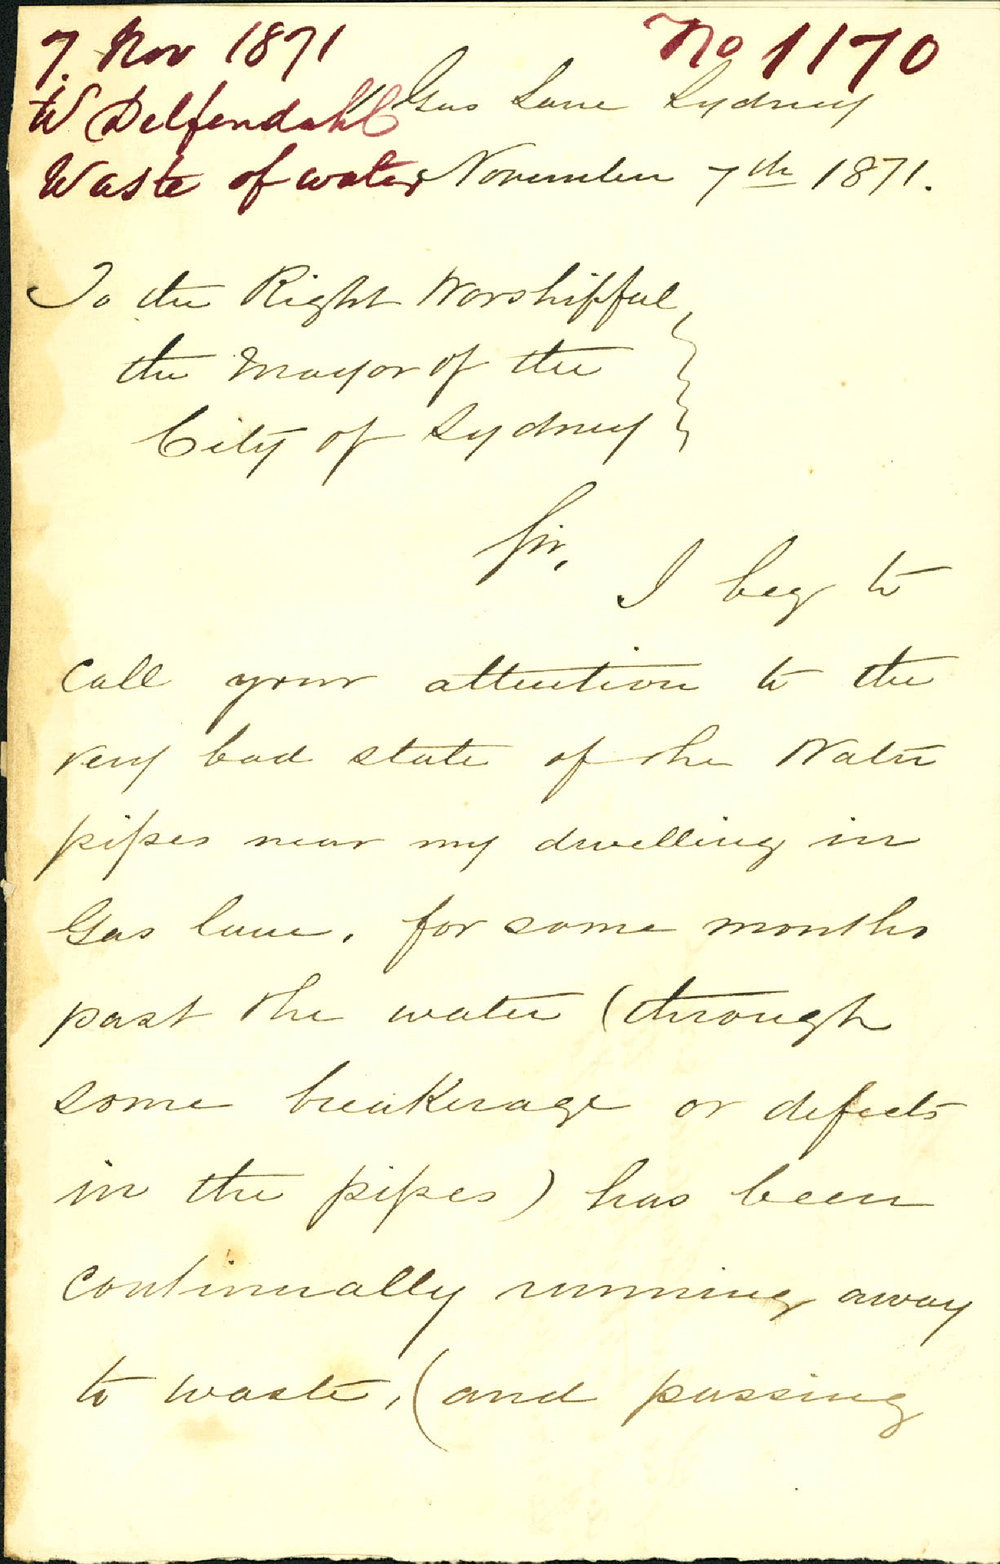 7. Nov 1871
No 1170
W Delfendahl
Gas Lane Sydney
Waste of water
November 7th 1871.
To the Right Worshipful
the Mayor of the
City of Sydney
Sir,
I beg to
call your attention to the
very bad state of the Water
pipes near my dwelling in
Gas lane. for some months
past the water (through
some breakerage or defects
in the pipes) has been
continually running away
to waste, (and passing